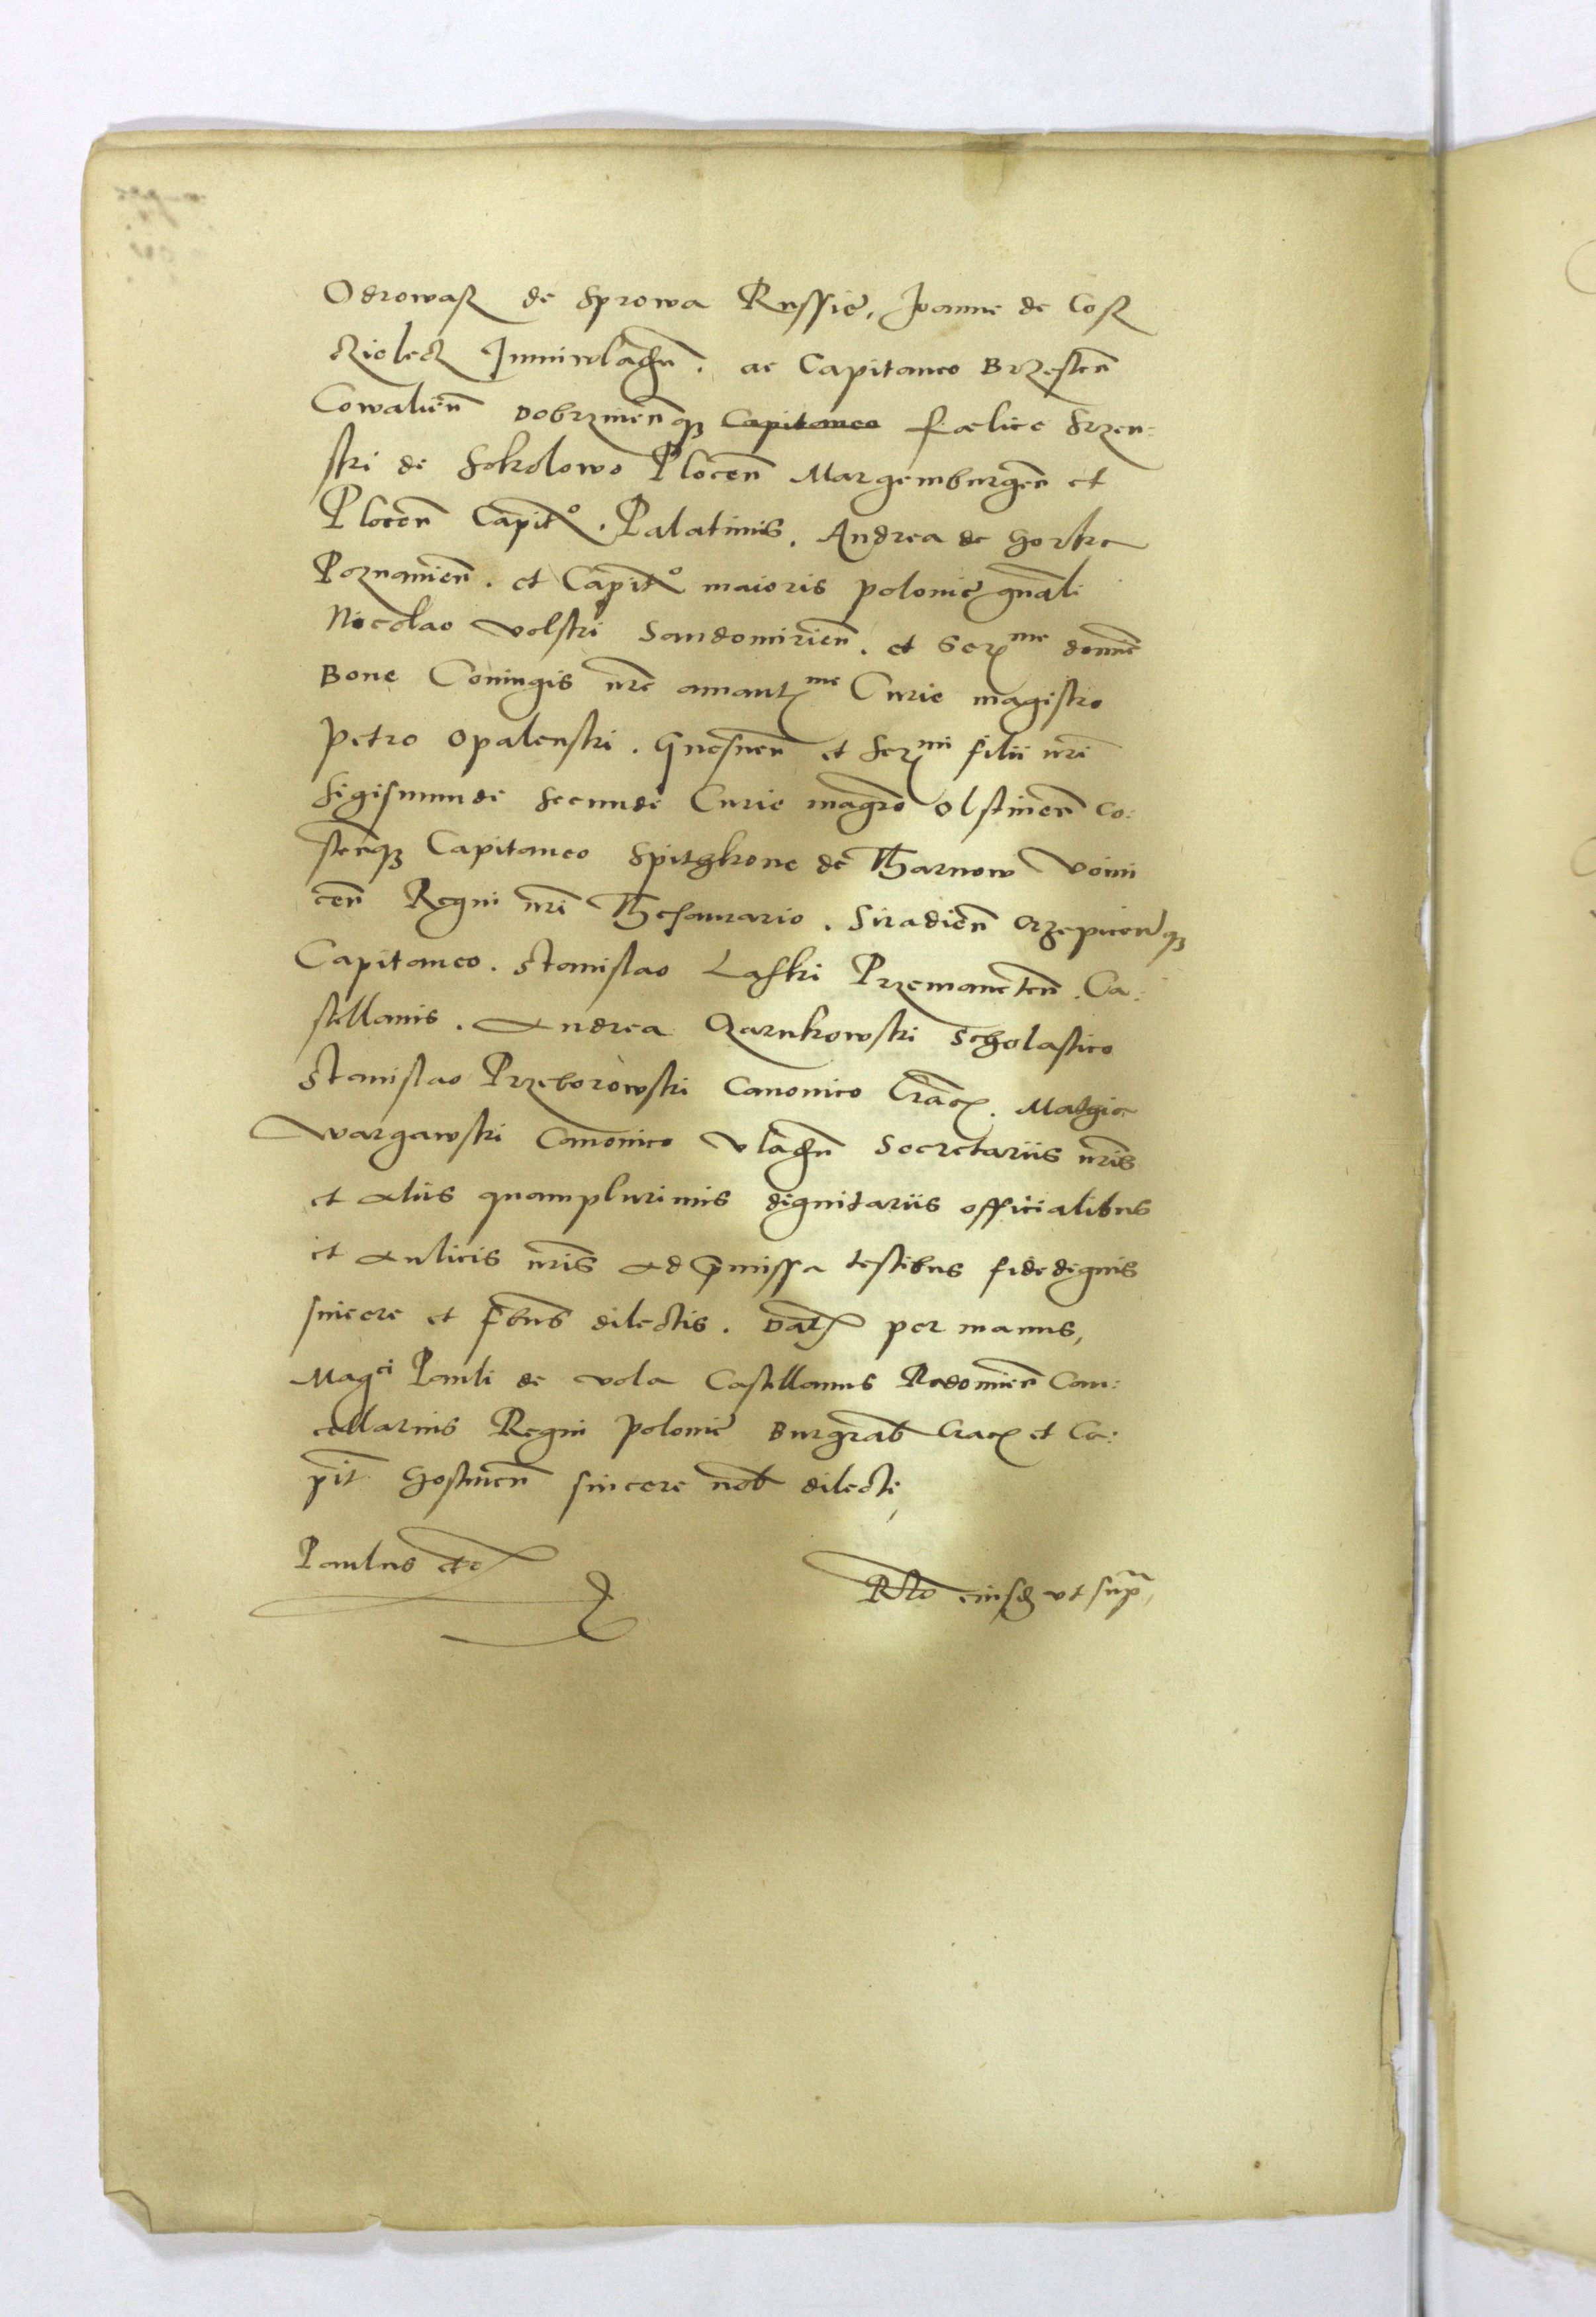 Odrowąsz de Sprowa Russie, Joanne de Cosz
czielecz Junniwladn̄. ac Capitaneo Brzesten̄
Cowalien̄ Dobrzinen̄qz Capitaneo Fœlice Srzen=
ski de Sokolowo Plocen̄ Margemburgen̄ et
Plocen̄ Capit̄º. Palatinis. Andrea de Gorka
Poznanien̄. et Capit̄º maioris polonie gn̄ali
Nicolao Volski Sandomirien̄. et Serme domne
Bone Coniugis nr̄e amantme Curie magistro
Petro Opalenski. Gnesnen̄ et Sermi filii nr̄i
Sigismundi Secundi Curie magr̄o Olstinen̄ Co=
stenqz Capitaneo Spitgkone de Tharnow Voini
cen̄ Regni nr̄i Thesaurario. Siradien̄ Crzepicen̄qz
Capitaneo. Stanislao Laski Przemeten̄. Ca=
stellanis. Andrea Czarnkowski Scholastico
Stanislao Przeborowski Canonico Crac̄. Mathia
Wargawski Canonico Vladn̄ Secretariis nr̄is
et aliis quamplurimis dignitariis officialibus
et aulicis nr̄is ad p̄missa testibus fidedignis
sincere et f̄bus dilectis. Dat̄ per manus,
Magci Pauli de Vola Castellanus Radomien̄ Can=
cellarius Regni Polonie Burgrab̄ Crac̄ et Ca=
pit̄ Gostinen̄ sincere nob̄ dilecti,
Paulus etc̄
Rl̄o eiusd̄ ut sup̄,